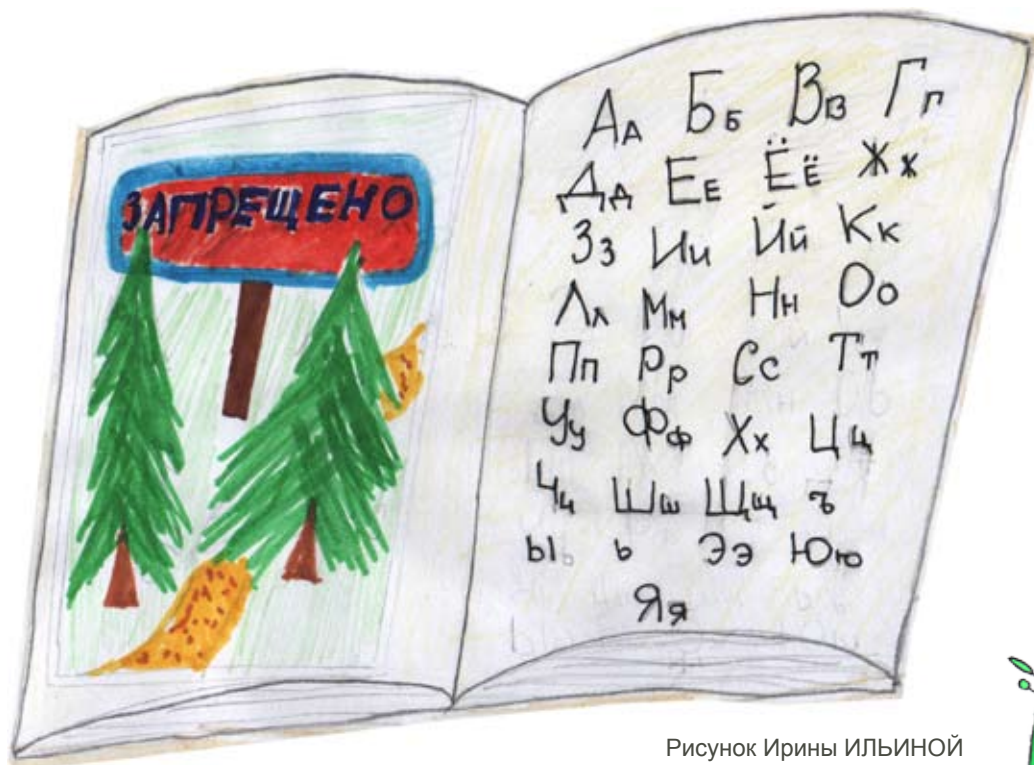 ЗАПРЕЩЕНО
Аа Бб Вв Гг
Дд Ее Ёё Жж
Зз Ии Йй Кк
Лл Мм Нн Оо
Пп Рр Сс Тт
Уу Фф Хх Цц
Чч Шш Щщ ъ
ы ь Ээ Юю
Яя
Рисунок Ирины ИЛЬИНОЙ